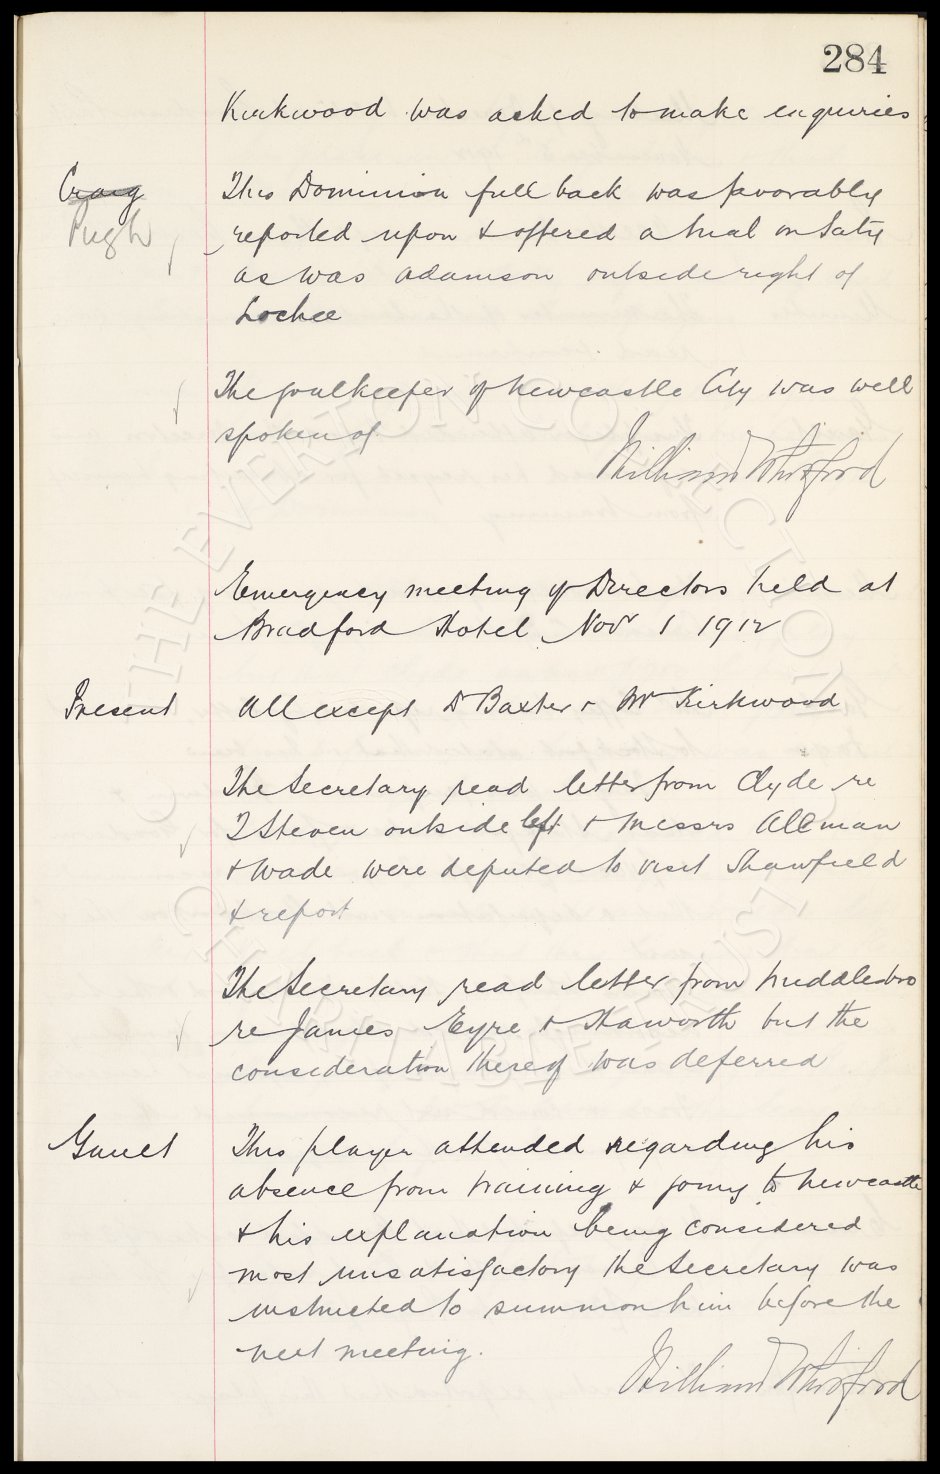 284
Kirkwood was asked to make enquiries
Craig
Pugh
This Dominion full back was favorably
reported upon & offered a trial on Saty
as was Adamson outside right of
Lochee
The goalkeeper of Newcastle City was well
spoken of.
William Whitford
Emergency meeting of Directors held at
Bradford Hotel Nov 1 1912
Present
All except Dr Baxter & Mr Kirkwood
The Secretary read letter from Clyde re
J Steven outside left & Messrs Allman
& Wade were deputed to visit Shawfield
& report
The Secretary read letter from Middlesbro
re James Eyre & Haworth but the
consideration thereof was deferred
Gault
This player attended regarding his
absence from training & going to Newcastle
& his explanation being considered
most unsatisfactory the Secretary was
instructed to summon him before the
next meeting.
William Whitford
THE EVERTON COLLECTION
CHARITABLE TRUST